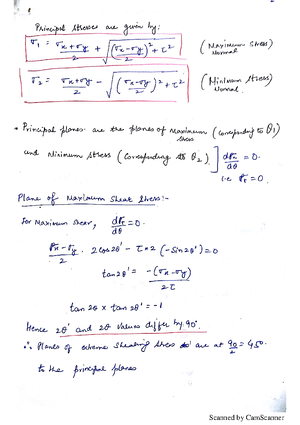 Principal stresses are given by:
σ₁ = (σx + σy)/2 + √(((σx - σy)/2)² + τ²) (Maximum Stress) Normal
σ₂ = (σx + σy)/2 - √(((σx - σy)/2)² + τ²) (Minimum Stress) Normal.
• Principal planes are the planes of Maximum stress (Corresponding to θ₁)
and Minimum Stress (Corresponding to θ₂) ] dσn/dθ = 0.
i.e = 0.
Plane of Maximum Shear Stress:-
For Maximum Shear, = 0.
(σx - σy)/2 · 2cos2θ' - τ × 2 (-Sin2θ') = 0
tan2θ' = -(σx - σy)/2τ
tan2θ × tan2θ' = -1
Hence 2θ' and 2θ values differ by 90°
∴ Planes of extreme shearing stress are at 90/2 = 45°
to the principal planes
Scanned by CamScanner